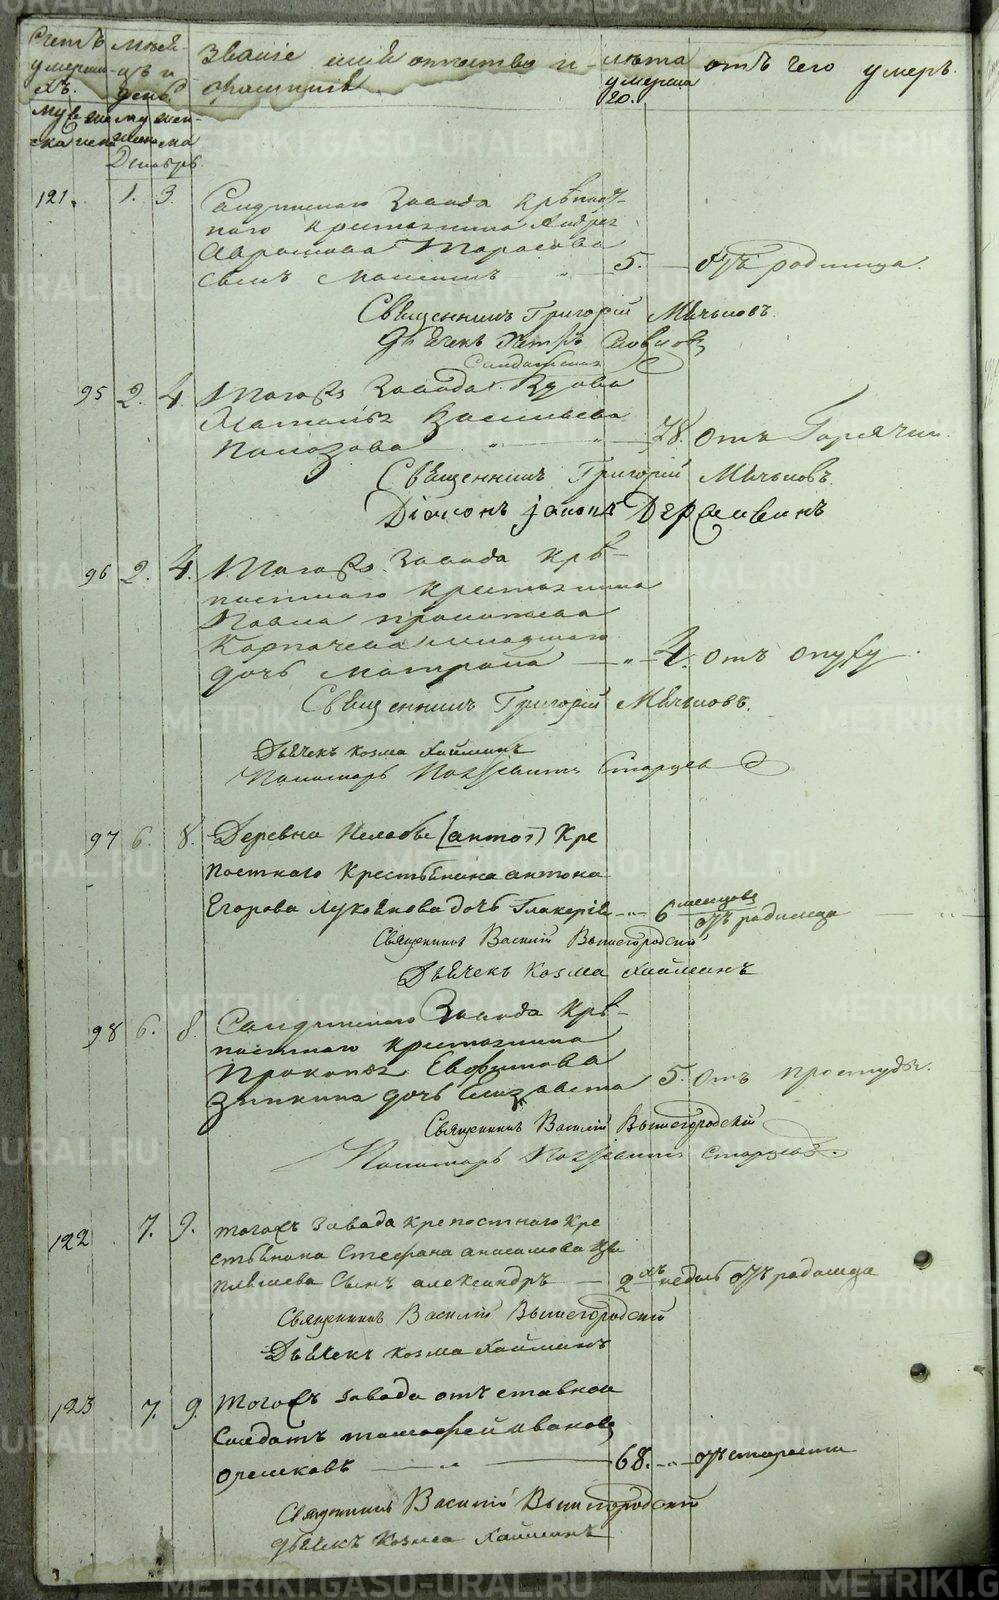 Счетъ умерши-хъ.
Месе-цъ и день.
Званіе имя отчество и фамилія
лѣта умерша го.
отъ чего умеръ.
муже ска жен
му жен ска
Декабрь
121. 1. 3. Салдинскаго Завода крѣпост-
наго крестьянина Андрея
Аврамова Тарасова
сынъ Максимъ " 5. — отъ родимца.
Священникъ Григорій Мѣльновъ.
Дьячекъ Петръ Словцовъ
Солдатская
95 2. 4. Тогожъ Завода Вдова
Наталья Васильева
Полозова " " 78. отъ Горячки.
Священникъ Григорій Мѣльновъ.
Діаконъ Іаковъ Державинъ
96 2. 4. Тогожъ Завода крѣ-
постнаго крестьянина
Павла
Карпачева меньшаго
дочь Матрона — " 4. отъ опуху.
Священникъ Григорій Мѣльновъ.
Дьячекъ Козма Хайминъ
Пономарь Старцевъ
97 6. 8. Деревни Нелобы (анто) Кре
постнаго Крестьянина антона
Егорова Лукоянова дочь Гликерія — " 6 месецовъ отъ родимца
Священникъ Василій Вышегородскій
Дьячекъ Козма Хайминъ
98 6. 8. Салдинскаго Завода Крѣ-
постнаго крестьянина
Прокопья Евфимова
Зыкина дочь Елизавета 5. отъ простуды.
Священникъ Василій Вышегородскій
Пономарь Старцевъ.
122 7. 9. тогожъ завада крепостнаго кре
стьянина Стефана анисимова
сынъ александръ — 2хъ недель отъ родимца
Священникъ Василій Вышегородскій
Дьячекъ Козма Хайминъ
123 7. 9. Тогожъ завода отъставной
Салдатъ тимофей ивановъ
орешковъ — " — 68. " отъ старости
Священникъ Василій Вышегородскій
дьячекъ Козма Хайминъ
METRIKI.GASO-URAL.RU